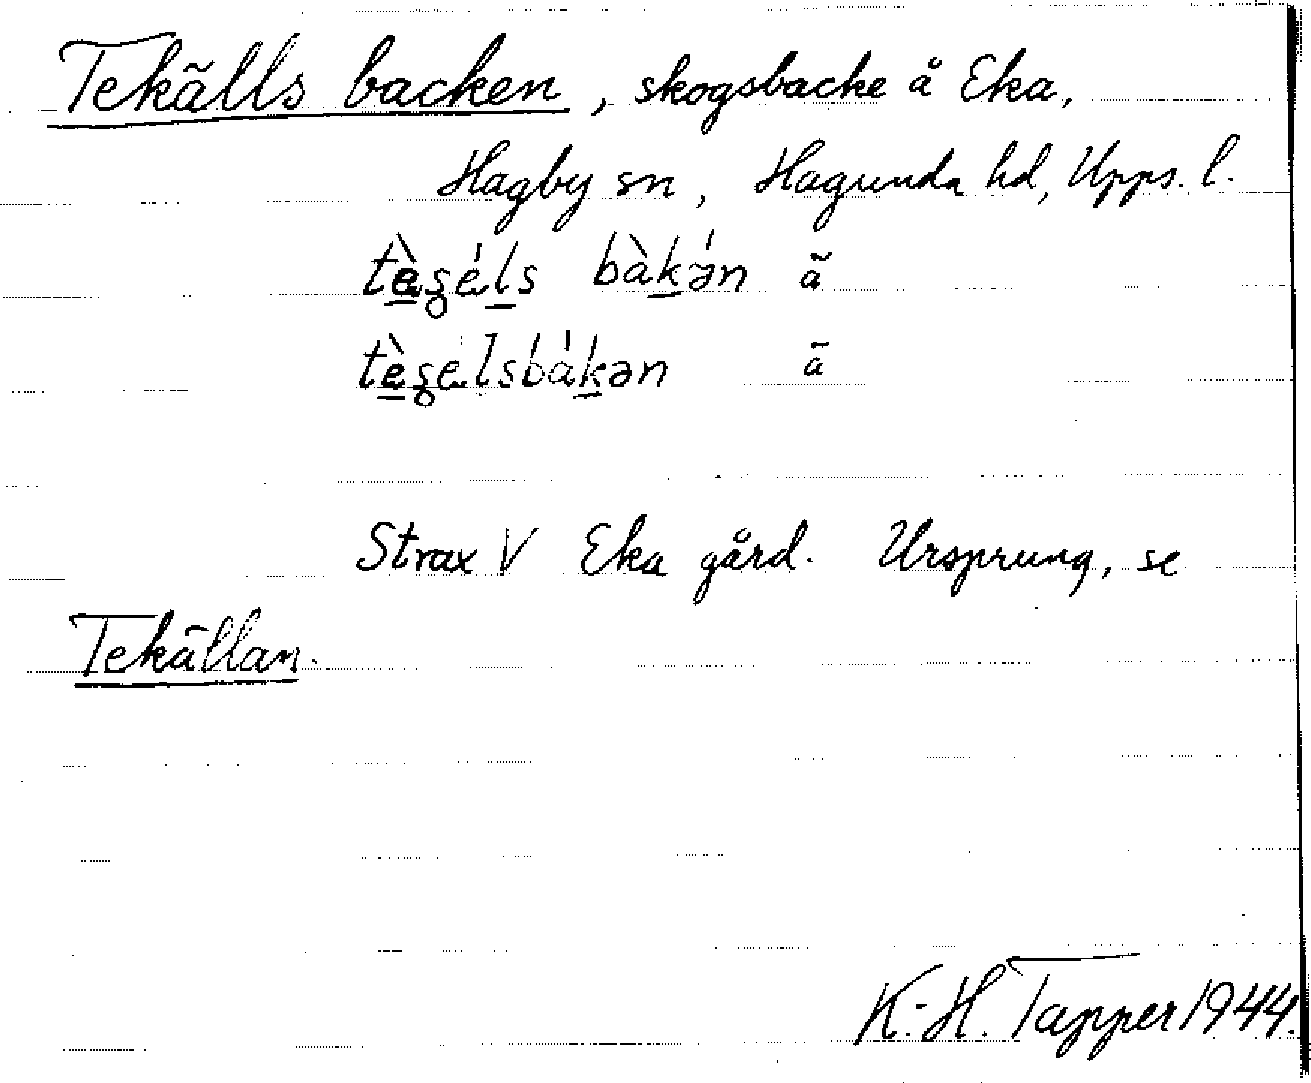 Tekälls backen, skogsbacke å Eka,
Hagby sn, Hagunda hd, Upps. l.
tèʂéls bàkə́n ã
tèʂelsbákən ã
Strax V Eka gård. Ursprung, se
Tekällan.
K.-H. Tapper 1944.